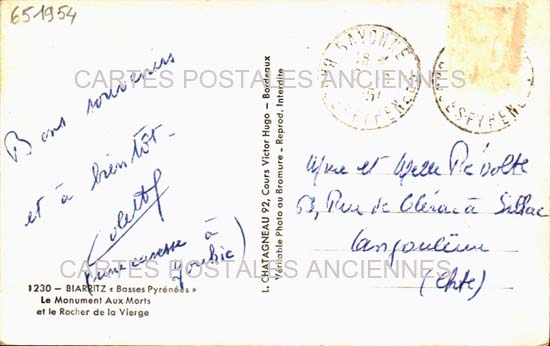 651954
Bons souvenirs
et à bientôt.
Colette
(une caresse à
1230 - BIARRITZ « Basses Pyrénées »
Le Monument Aux Morts
et le Rocher de la Vierge
L. CHATAGNEAU 92, Cours Victor Hugo - Bordeaux
Véritable Photo au Bromure - Reprod. Interdire
BAYONNE
Mme et Melle Révolte
63, Rue de Clérac à Sillac
Angoulême
(Chte)
CARTES POSTALES ANCIENNES
CARTES POSTALES ANCIENNES